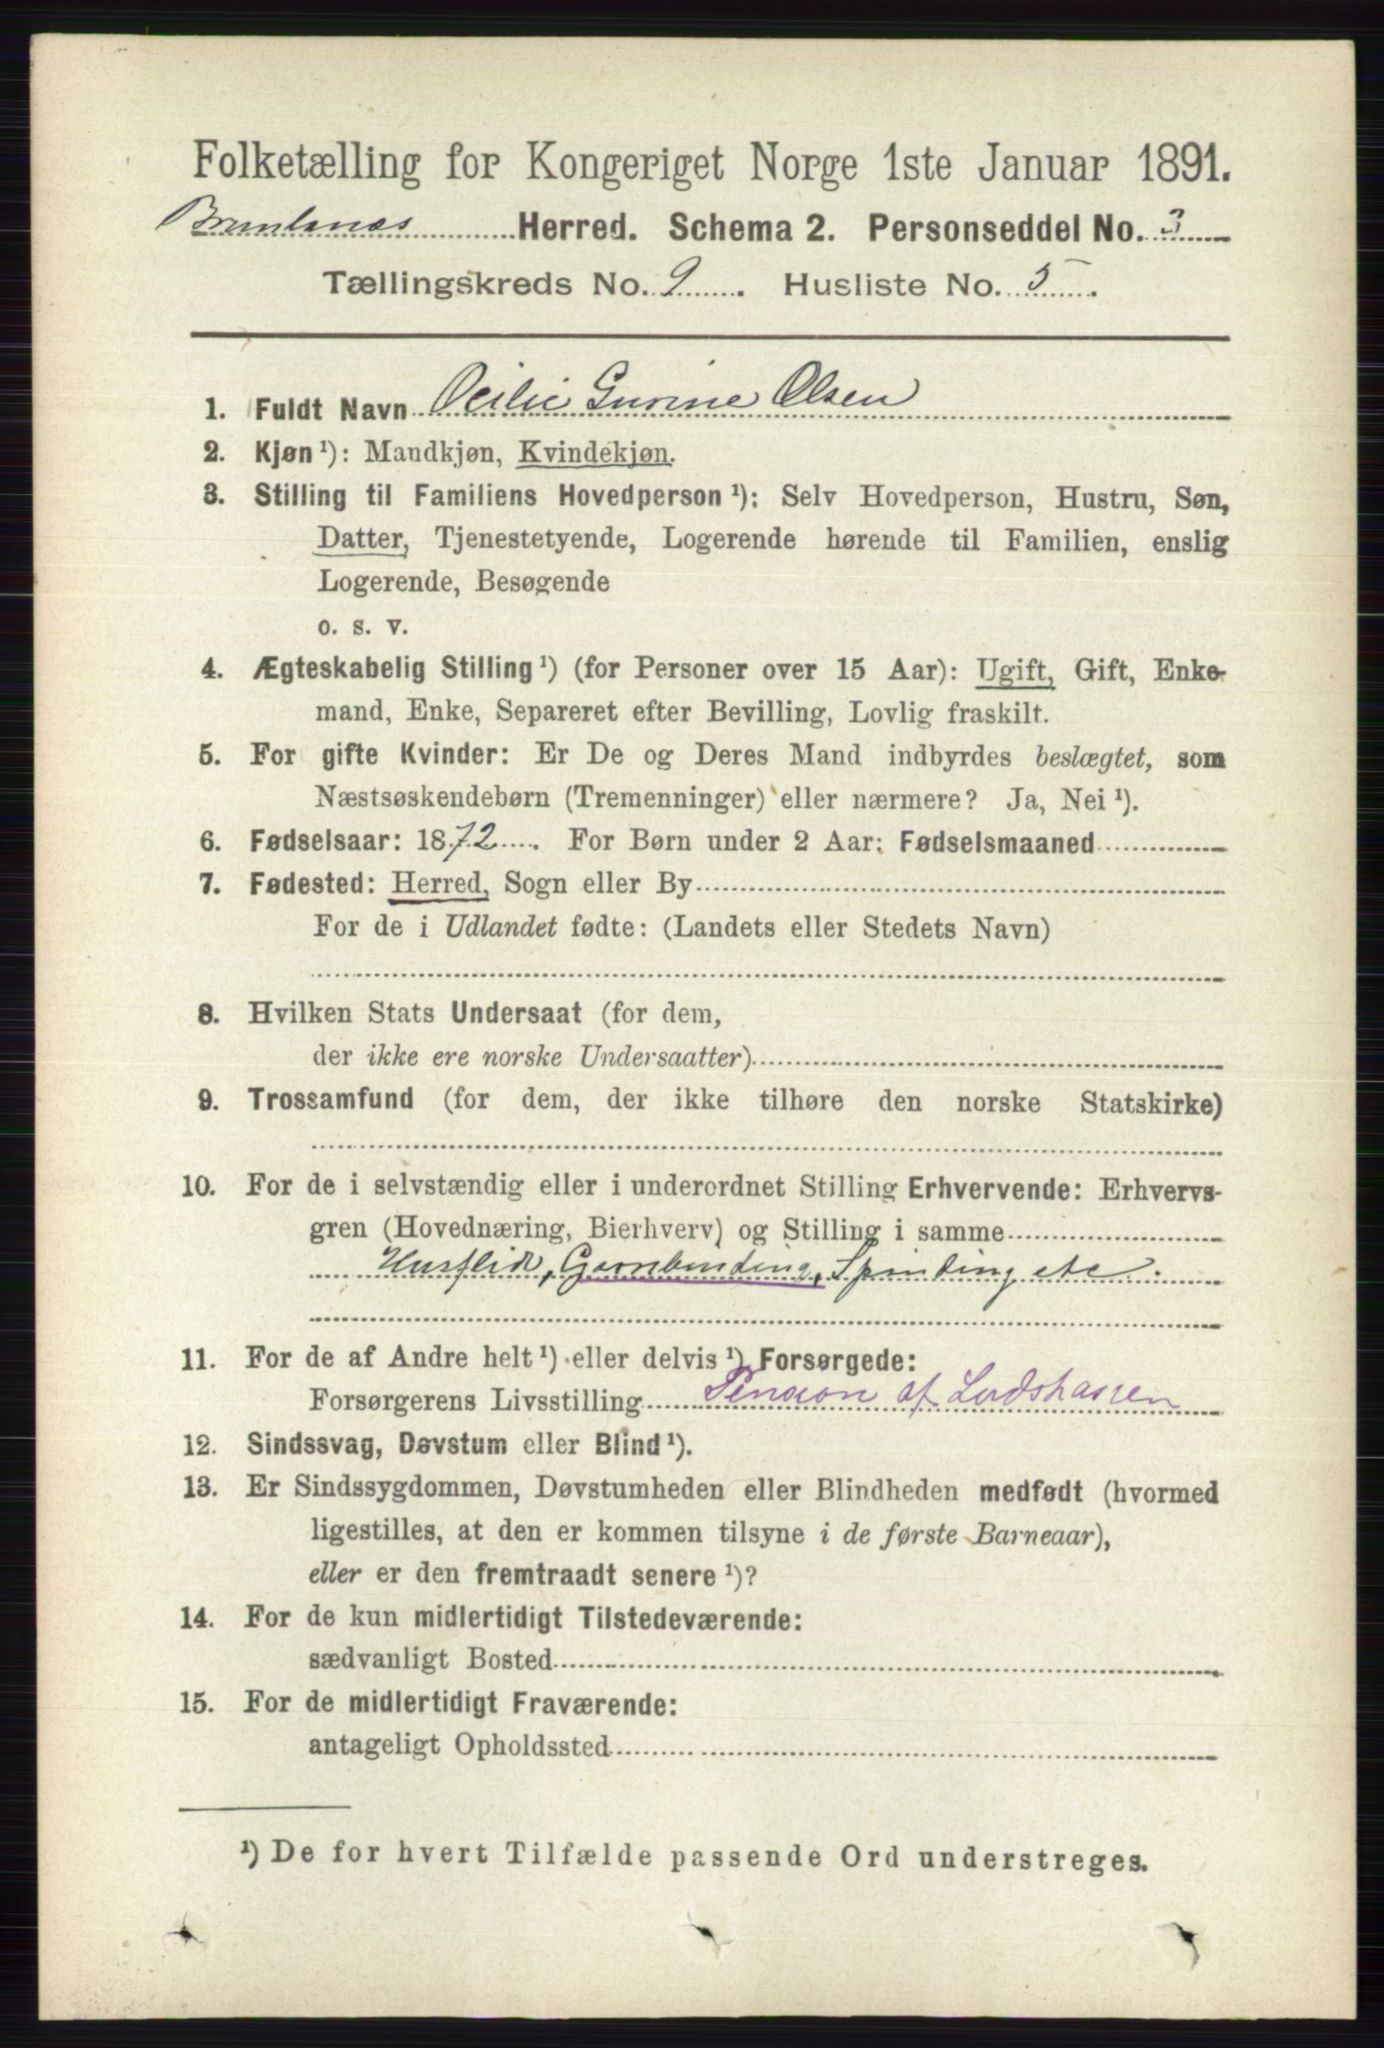 Folketælling for Kongeriget Norge 1ste Januar 1891.
Brunlanæs Herred. Schema 2. Personseddel No. 3
Tællingskreds No. 9. Husliste No. 5.
1. Fuldt Navn Gurine Olsen
2. Kjøn ¹): Mandkjøn, Kvindekjøn.
3. Stilling til Familiens Hovedperson ¹): Selv Hovedperson, Hustru, Søn,
Datter, Tjenestetyende, Logerende hørende til Familien, enslig
Logerende, Besøgende
o. s. v.
4. Ægteskabelig Stilling ¹) (for Personer over 15 Aar): Ugift, Gift, Enke-
mand, Enke, Separeret efter Bevilling, Lovlig fraskilt.
5. For gifte Kvinder: Er De og Deres Mand indbyrdes beslægtet, som
Næstsøskendebørn (Tremenninger) eller nærmere? Ja, Nei ¹).
6. Fødselsaar: 1872. For Børn under 2 Aar: Fødselsmaaned
7. Fødested: Herred, Sogn eller By
For de i Udlandet fødte: (Landets eller Stedets Navn)
8. Hvilken Stats Undersaat (for dem,
der ikke ere norske Undersaatter)
9. Trossamfund (for dem, der ikke tilhøre den norske Statskirke)
10. For de i selvstændig eller i underordnet Stilling Erhvervende: Erhvervs-
gren (Hovednæring, Bierhverv) og Stilling i samme
Husflid, Garnbinding, Spinding etc.
11. For de af Andre helt ¹) eller delvis ¹) Forsørgede:
Forsørgerens Livsstilling Pension af Lodskassen
12. Sindssvag, Døvstum eller Blind ¹).
13. Er Sindssygdommen, Døvstumheden eller Blindheden medfødt (hvormed
ligestilles, at den er kommen tilsyne i de første Barneaar),
eller er den fremtraadt senere ¹)?
14. For de kun midlertidigt Tilstedeværende:
sædvanligt Bosted
15. For de midlertidigt Fraværende:
antageligt Opholdssted
¹) De for hvert Tilfælde passende Ord understreges.